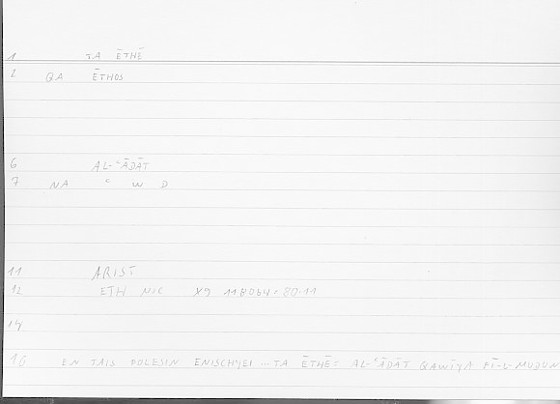 1 TA ĒTHĒ
2 QA ĒTHOS
6 AL-ʿĀDĀT
7 NA ʿ W D
11 ARIST
12 ETH NIC X9 1180b4: 80.11
14
16 EN TAIS POLESIN ENISCHYEI ... TA ĒTHĒ: AL-ʿĀDĀT QAWĪYA FĪ-L-MUDUN